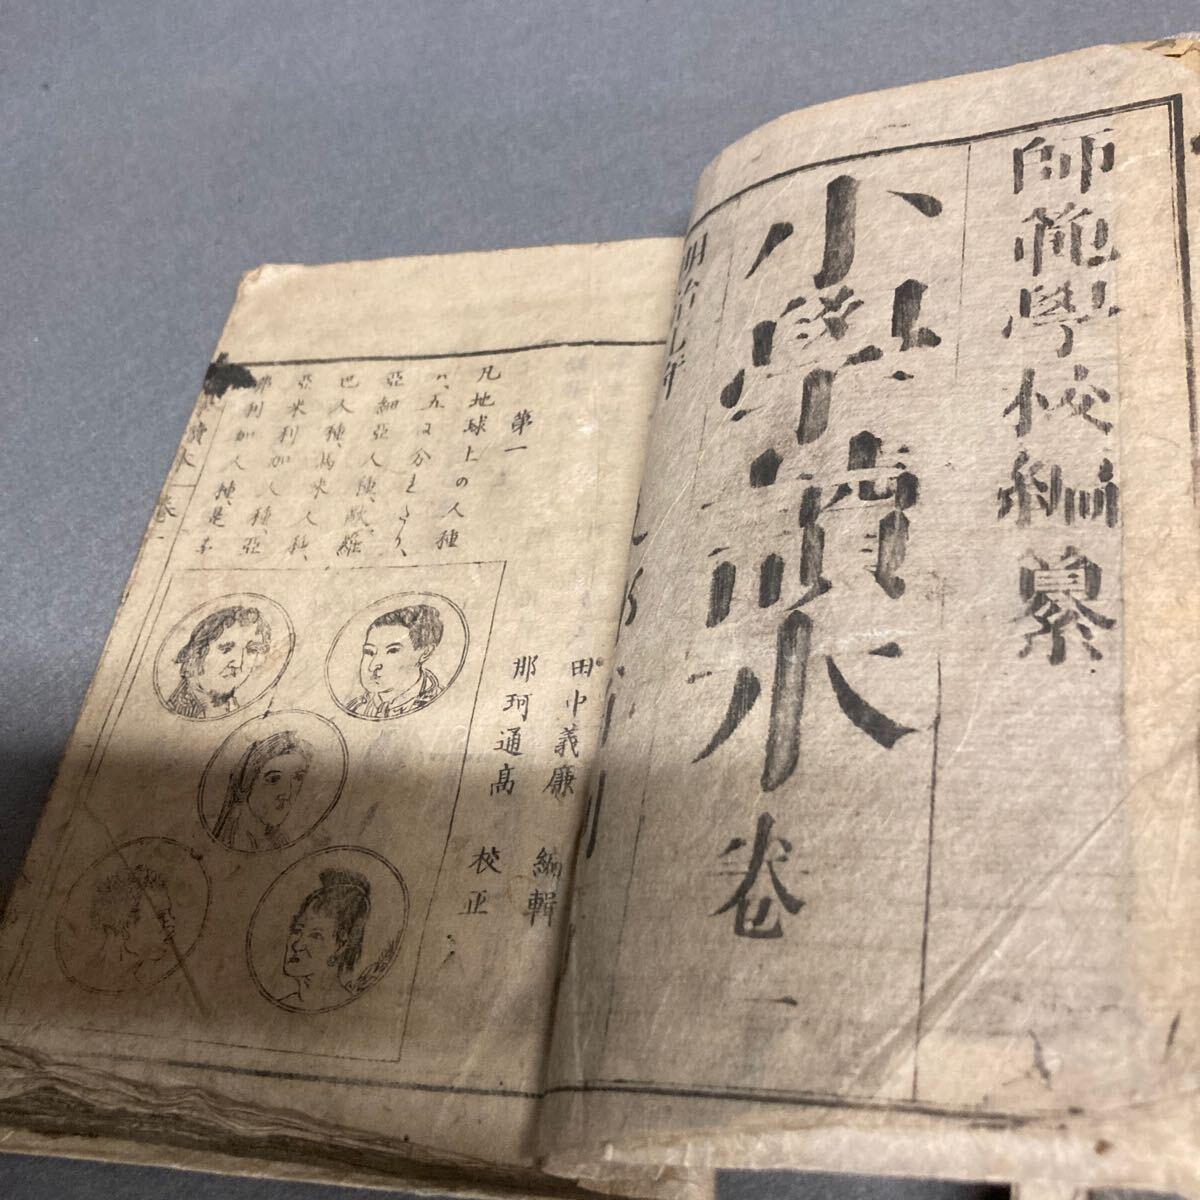 師範學校編纂
小學讀本卷一
明治七年
田中義廉 編輯
那珂通高 校正
第一
凡地球上の人種
ハ、五に分れたり、
亞細亞人種、歐羅
巴人種、馬來人種、
亞米利加人種、亞
弗利加人種、是な